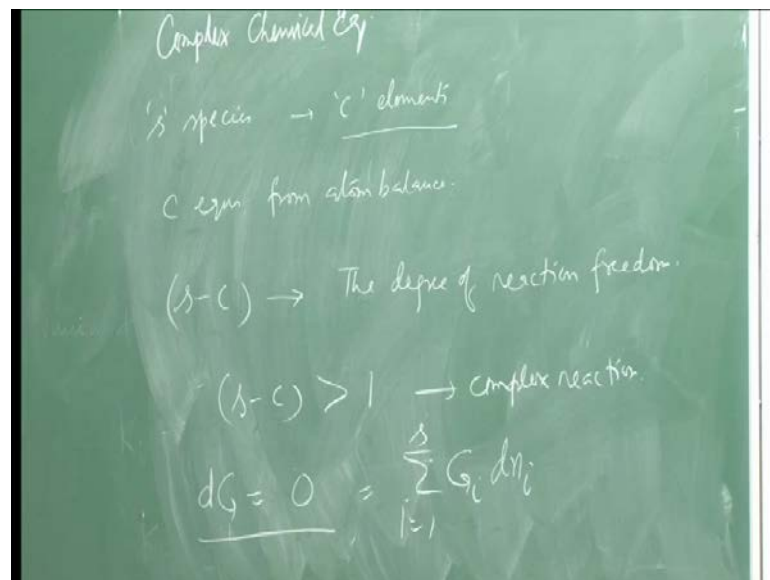 Complex Chemical Eq.
's' species → 'c' elements
C eqns from atom balance.
(s-c) → The degree of reaction freedom.
(s-c) > 1 → complex reaction.
dG = 0 = \sum_{i=1}^{s} G_i dn_i